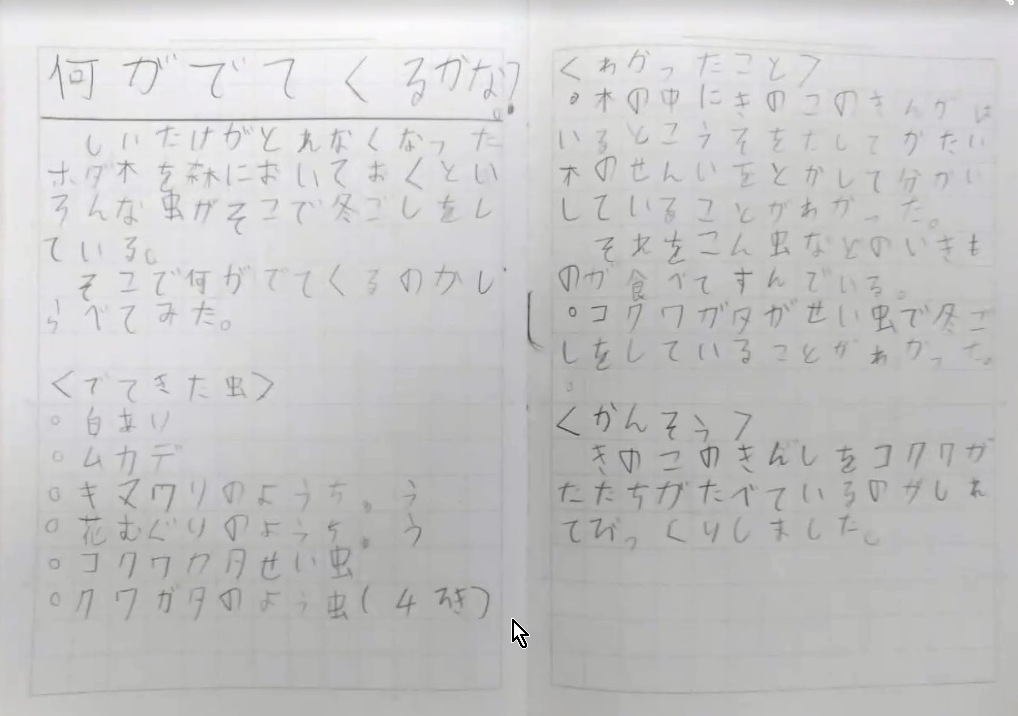 何がでてくるかな?
しいたけがとれなくなった
ホダ木を森においておくとい
ろんな虫がそこで冬ごしをし
ている。
そこで何がでてくるのかし
らべてみた。
<でてきた虫>
○白あり
○ムカデ
○キマワリのようち。う
○花むぐりのようち。う
○コクワカタせい虫
○クワガタのよう虫(4ひき)
<わかったこと>
○木の中にきのこのきんがは
いるとこうそをだしてかたい
木のせんいをとかして分かい
していることがわかった。
それをこん虫などのいきも
のが食べてすんでいる。
○コクワガタがせい虫で冬ご
しをしていることがわかった。
<かんそう>
きのこのきんしをコクワガ
たたちがたべているのがしれ
てびっくりしました。